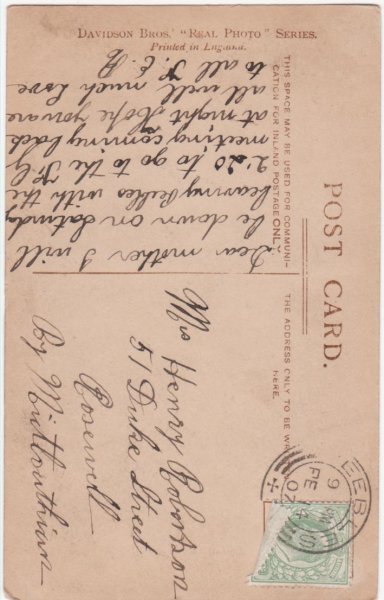 DAVIDSON BROS.' "REAL PHOTO" SERIES.
Printed in England.
POST CARD.
THIS SPACE MAY BE USED FOR COMMUNI-
CATION FOR INLAND POSTAGE ONLY
THE ADDRESS ONLY TO BE WR
HERE.
Dear mother I will
be down on Saturday
leaving Peebles with the
2.20 to go to the K.C
meeting coming back
at night Hope you are
all well much love
to all
Mrs Henry Robertson
51 Duke Street
Rosewell
By Midlouthian
PEEBLES
FE 14
07